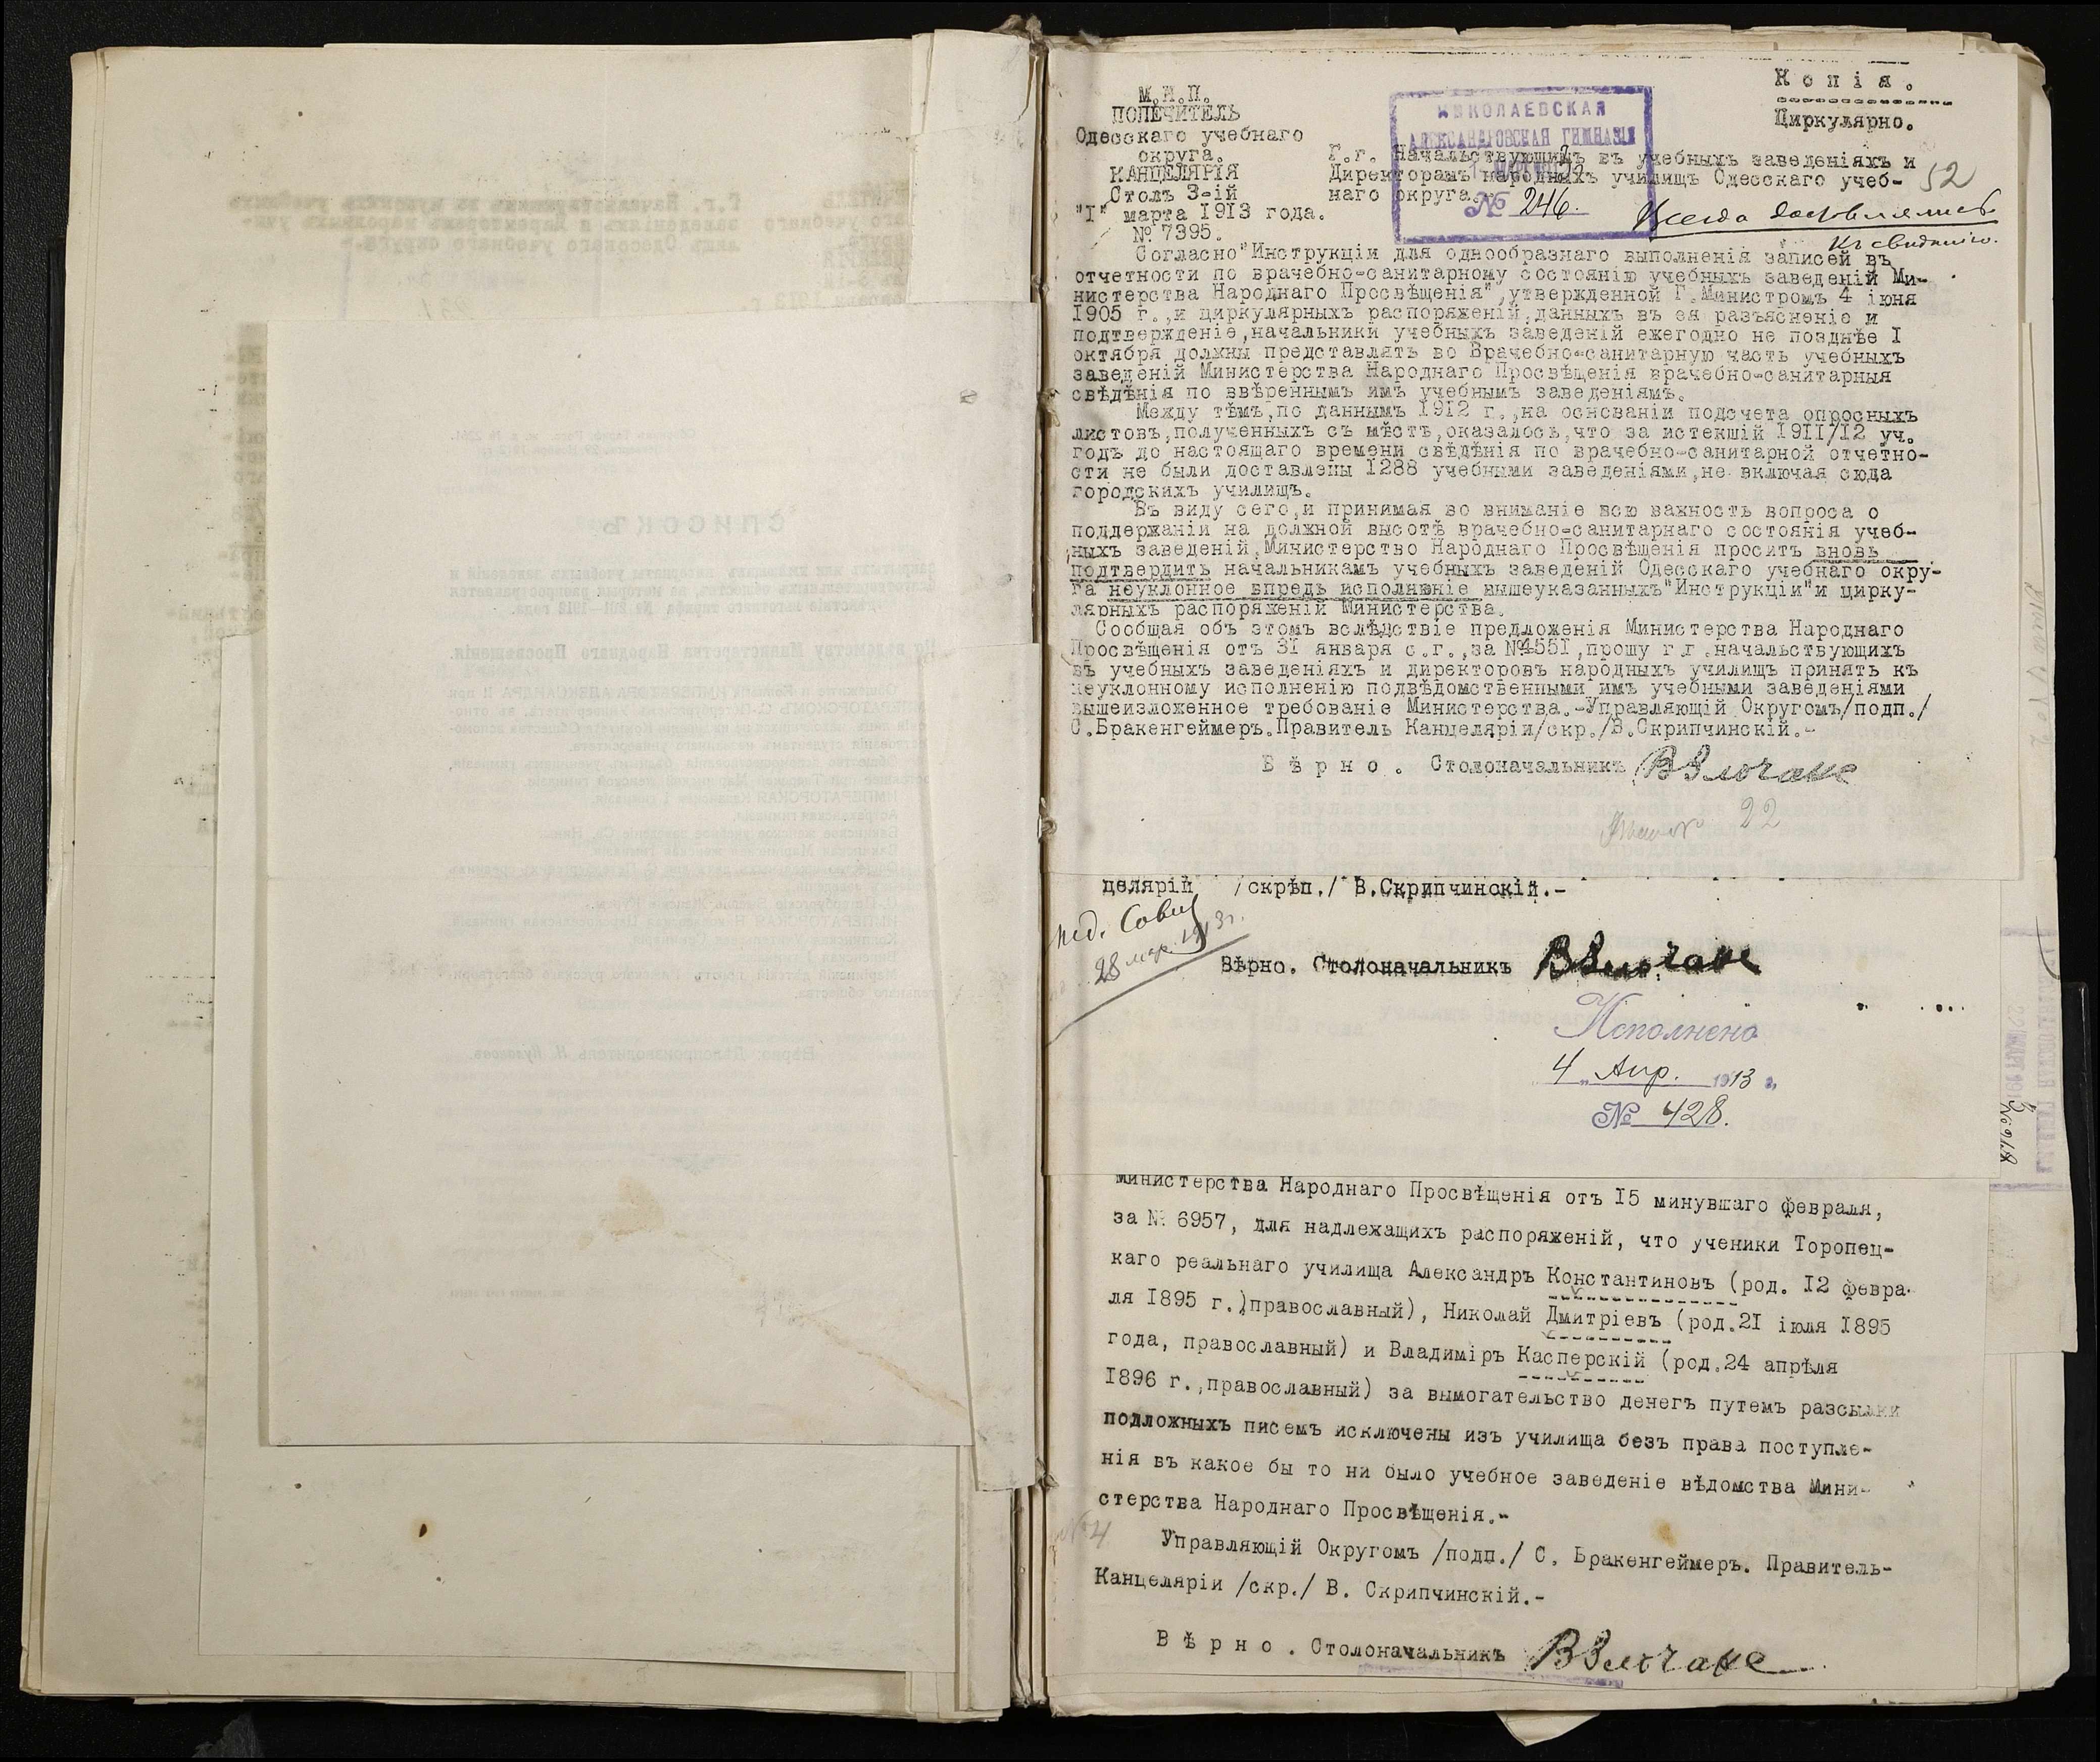 Копія.
Циркулярно.
М.Н.П.
ПОПЕЧИТЕЛЬ
Одесскаго учебнаго
округа.
КАНЦЕЛЯРІЯ
Столъ 3-ій
"I" марта 1913 года.
№ 7395.
НИКОЛАЕВСКАЯ
АЛЕКСАНДРОВСКАЯ ГИМНАЗІЯ
№ 246.
Г.г. Начальствующимъ въ учебныхъ заведеніяхъ и
Директорамъ народныхъ училищъ Одесскаго учеб-
наго округа.
52
Всегда доставлялись
Къ свидѣнію.
Согласно "Инструкціи для однообразнаго выполненія записей въ
отчетности по врачебно-санитарному состоянію учебныхъ заведеній Ми-
нистерства Народнаго Просвѣщенія", утвержденной Г.Министромъ 4 іюня
1905 г.,и циркулярныхъ распоряженій,данныхъ въ ея разъясненіе и
подтвержденіе,начальники учебныхъ заведеній ежегодно не позднѣе I
октября должны представлять во Врачебно-санитарную часть учебныхъ
заведеній Министерства Народнаго Просвѣщенія врачебно-санитарныя
свѣдѣнія по ввѣреннымъ имъ учебнымъ заведеніямъ.
Между тѣмъ,по даннымъ 1912 г.,на основаніи подсчета опросныхъ
листовъ,полученныхъ съ мѣстъ,оказалось,что за истекшій 1911/12 уч.
годъ до настоящаго времени свѣдѣнія по врачебно-санитарной отчетно-
сти не были доставлены 1288 учебными заведеніями,не включая сюда
городскихъ училищъ.
Въ виду сего,и принимая во вниманіе всю важность вопроса о
поддержаніи на должной высотѣ врачебно-санитарнаго состоянія учеб-
ныхъ заведеній,Министерство Народнаго Просвѣщенія проситъ вновь
подтвердить начальникамъ учебныхъ заведеній Одесскаго учебнаго окру-
га неуклонное впредь исполненіе вышеуказанныхъ "Инструкціи" и цирку-
лярныхъ распоряженій Министерства.
Сообщая объ этомъ вслѣдствіе предложенія Министерства Народнаго
Просвѣщенія отъ 31 января с.г.,за №4551,прошу г.г.начальствующихъ
въ учебныхъ заведеніяхъ и директоровъ народныхъ училищъ принять къ
неуклонному исполненію подвѣдомственными имъ учебными заведеніями
вышеизложенное требованіе Министерства.-Управляющій Округомъ/подп./
С.Бракенгеймеръ.Правитель Канцеляріи/скр./В.Скрипчинскій.-
Вѣрно. Столоначальникъ
22
целяріи /скрѣп./ В.Скрипчинскій.-
пед. Совѣт
28 мар. 1913 г.
Вѣрно. Столоначальникъ
Исполнено
4 Апр. 1913 г.
№ 428.
Министерства Народнаго Просвѣщенія отъ 15 минувшаго февраля,
за № 6957, для надлежащихъ распоряженій, что ученики Торопец-
каго реальнаго училища Александръ Константиновъ (род. 12 февра-
ля 1895 г.)православный), Николай Дмитріевъ (род.21 іюля 1895
года, православный) и Владиміръ Касперскій (род.24 апрѣля
1896 г.,православный) за вымогательство денегъ путемъ разсылки
подложныхъ писемъ исключены изъ училища безъ права поступле-
нія въ какое бы то ни было учебное заведеніе вѣдомства Мини-
стерства Народнаго Просвѣщенія.-
Управляющій Округомъ /подп./ С. Бракенгеймеръ. Правитель-
Канцеляріи /скр./ В. Скрипчинскій.-
Вѣрно. Столоначальникъ